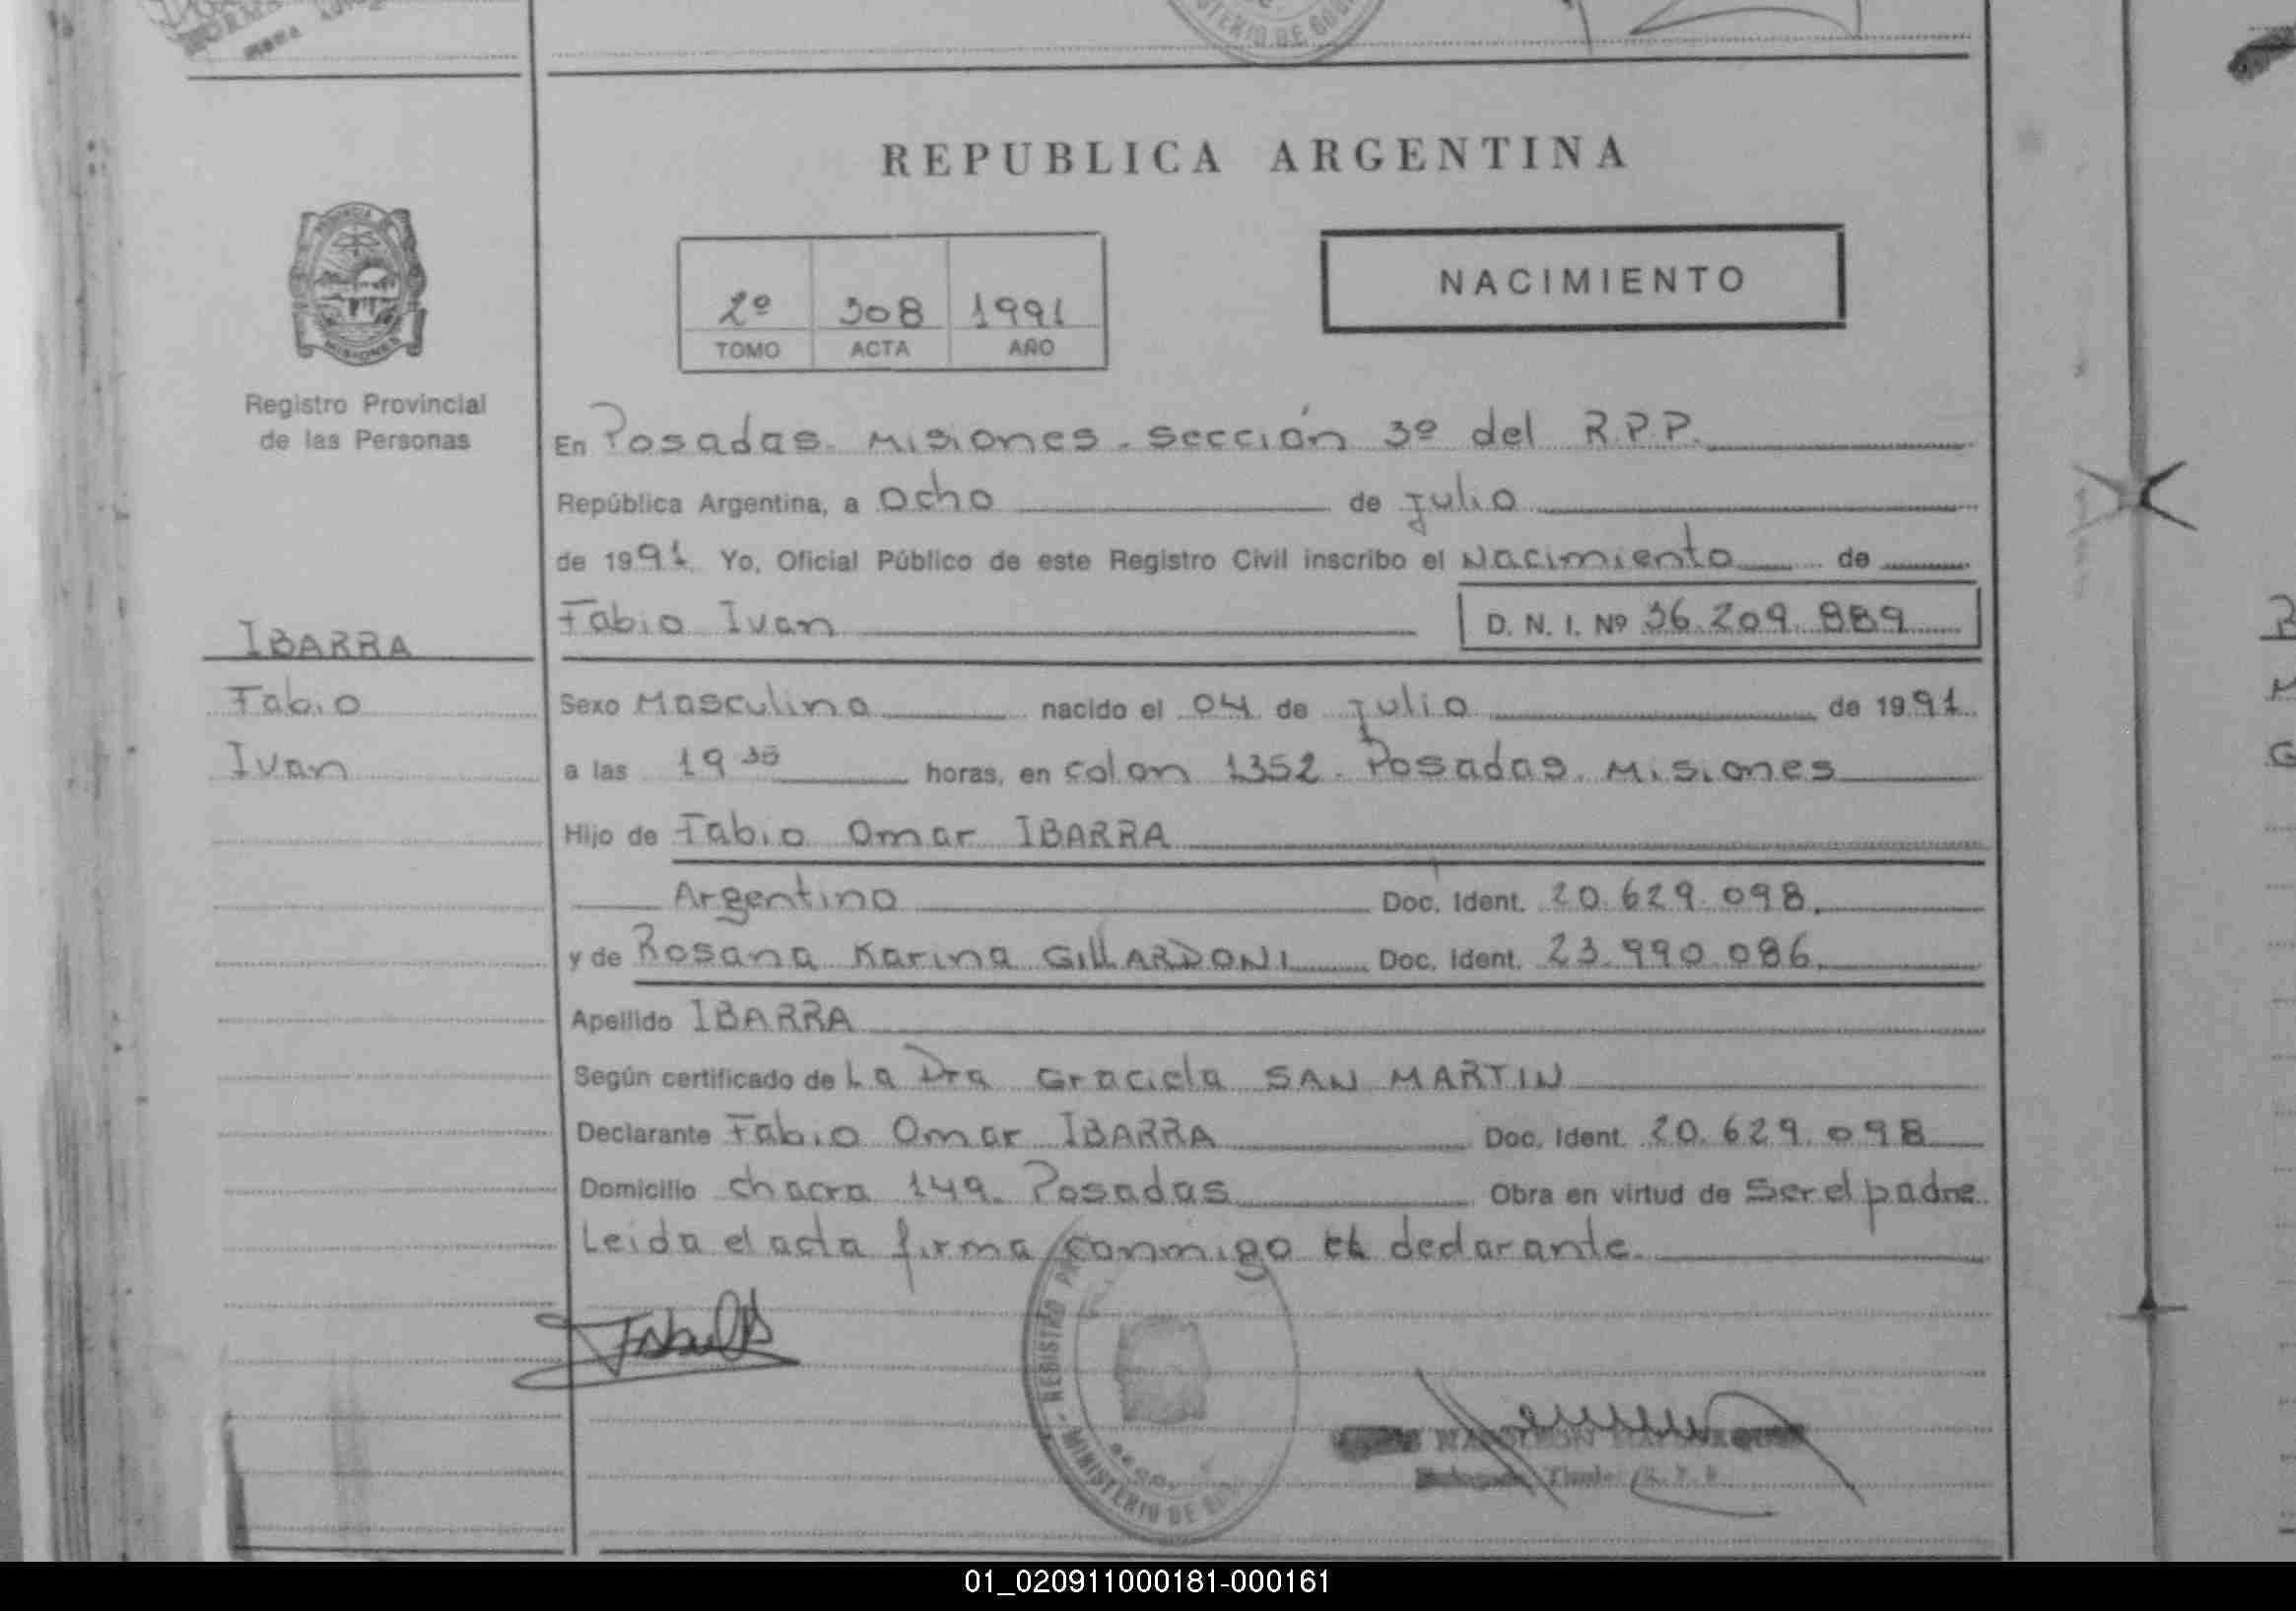 MINISTERIO DE GOB
REPUBLICA ARGENTINA
PROVINCIA
MISIONES
Registro Provincial
de las Personas
2º 308 1991
TOMO ACTA AÑO
NACIMIENTO
En Posadas. Misiones. Sección 3º del R.P.P.
República Argentina, a Ocho de julio
de 1991. Yo, Oficial Público de este Registro Civil inscribo el Nacimiento de
IBARRA
Fabio
Ivan
Fabio Ivan D. N. I. Nº 36.209.889
Sexo Masculino nacido el 04 de julio de 1991.
a las 19 30 horas, en colon 1352. Posadas. Misiones
Hijo de Fabio Omar IBARRA
Argentino Doc. Ident. 20.629.098.
y de Rosana Karina GILLARDONI Doc. Ident. 23.990.086.
Apellido IBARRA
Según certificado de La Dra Graciela SAN MARTIN
Declarante Fabio Omar IBARRA Doc. Ident. 20.629.098
Domicilio chacra 149. Posadas Obra en virtud de ser el padre.
Leida el acta firma conmigo el declarante.
REGISTRO
MINISTERIO DE
01_020911000181-000161